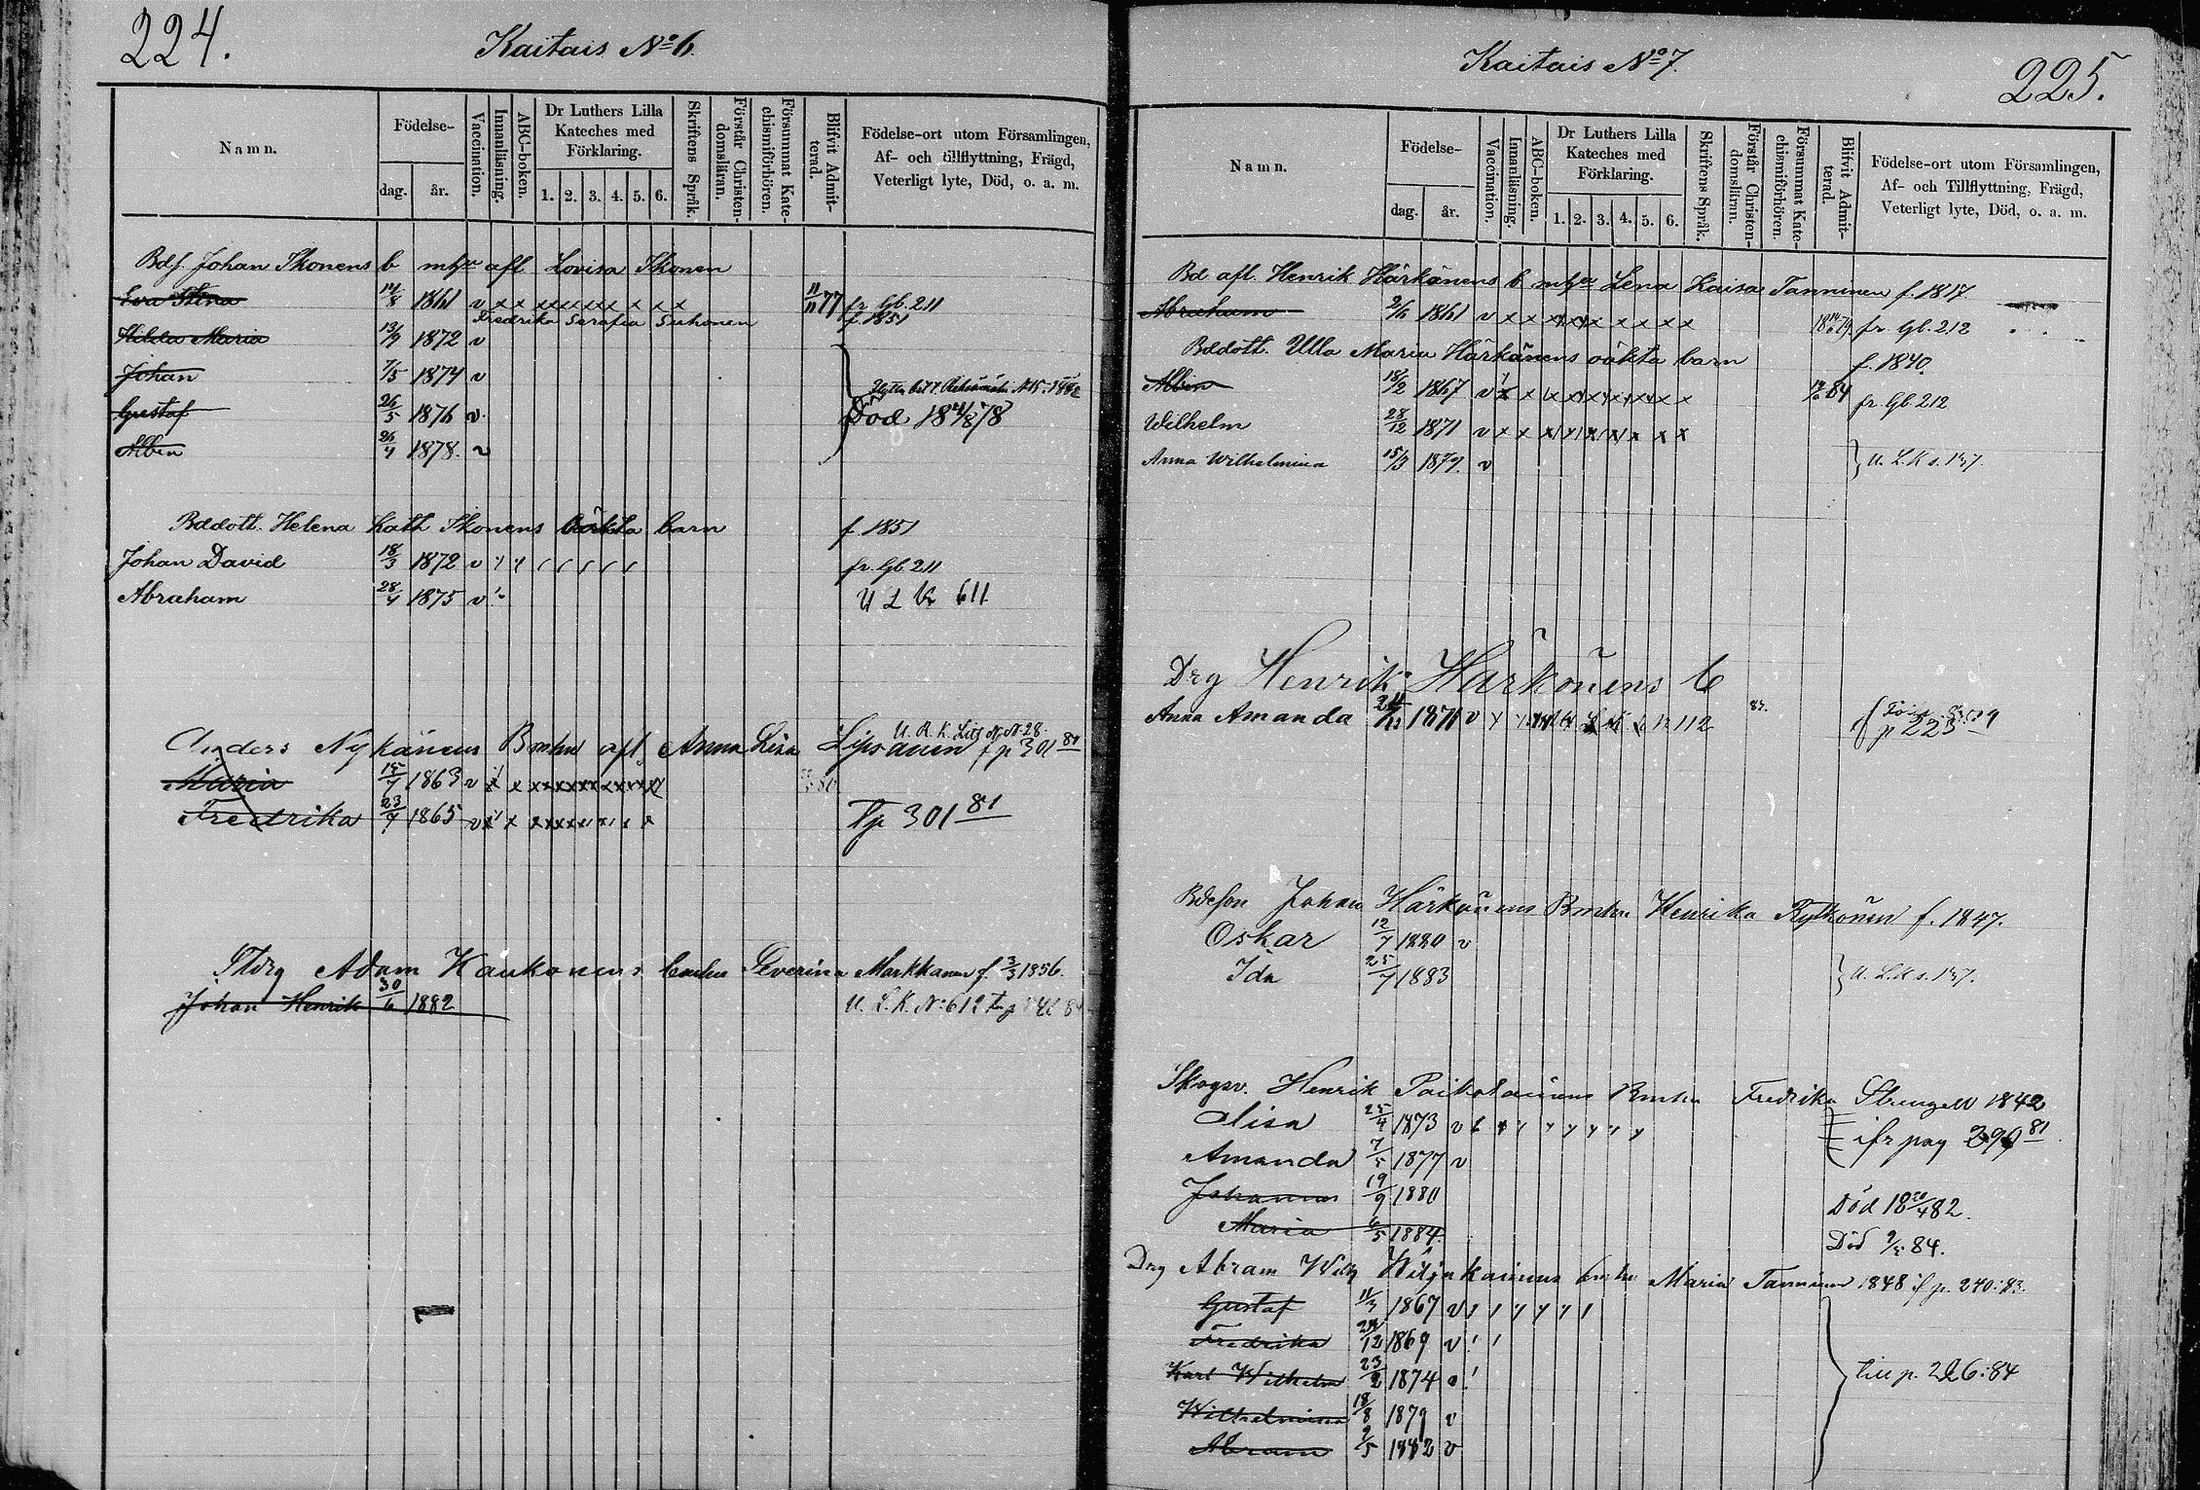 224.
Kaitais No 6.
Namn.
Födelse-
dag.
år.
Vaccination.
Innanläsning.
ABC-boken.
Dr Luthers Lilla
Kateches med
Förklaring.
1. 2. 3. 4. 5. 6.
Skriftens Språk.
Förstår Christen-
domsläran.
Försummat Kate-
chismiförhören.
Blifvit Admit-
terad.
Födelse-ort utom Församlingen,
Af- och tillflyttning, Frägd,
Veterligt lyte, Död, o. a. m.
Johan Ikonens b afl Lovisa Ikonen
Eva Stina 14/8 1861 v x x x x x x x x x x 11/11 77 fr. Gb. 211
Fredrika Serafia Suhonen f. 1851
Hilda Maria 13/9 1872 v
Johan 7/5 1874 v
Gustaf 26/5 1876 v
Död
Albin 1878. v
Bddott. Helena Kath Ikonens oäkta barn f. 1851
Johan David 18/3 1872 v fr. Gb. 211
Abraham 28/4 1875 v U L K 611
Anders Nykänens afl Anna Lisa
Maria 15/7 1863 v x x x x x x x x
Fredrika 23/7 1865 v x x x x x x x Tp 301 81
Adam Kaukonens Severina Markkanen f. 3/3 1856.
Johan Henrik 30/6 1882 U. L. K. No 612
225.
Kaitais No 7.
Namn.
Födelse-
dag.
år.
Vaccination.
Innanläsning.
ABC-boken.
Dr Luthers Lilla
Kateches med
Förklaring.
1. 2. 3. 4. 5. 6.
Skriftens Språk.
Förstår Christen-
domsläran.
Försummat Kate-
chismiförhören.
Blifvit Admit-
terad.
Födelse-ort utom Församlingen,
Af- och Tillflyttning, Frägd,
Veterligt lyte, Död, o. a. m.
Bd afl. Henrik Härkönens b Lena Kaisa Tanninen f. 1817
Abraham 1861 v x x x x x x x x x fr. Gb. 212
Bddott. Ulla Maria Härkönens oäkta barn f. 1840.
Albin 18/2 1867 v x x x x x x x x 84 fr. Gb. 212
Wilhelm 28/12 1871 v x x x x x x x x
Anna Wilhelmina 15/3 1879. v U. L. K s. 137.
Drg Henrik Härkönens b
Anna Amanda 1871 v p 223
Bdeson Johan Härkönens Henrika f. 1847.
Oskar 12/7 1880 v
Ida 25/7 1883 U. L. K s. 137.
Skogsv. Henrik Fredrika Strengell 1842
Alisa 25/4 1873 v ifr pag 290 81
Amanda 7/5 1877 v
Johannes 19/9 1880 Död 18 20/4 82.
Maria 6/5 1884. Död 84.
Drg Abram Maria Tanninen 1848 if p. 240:83.
Gustaf 1867 v
Fredrika 1869 v
Karl Wilhelm 23/2 1874 v till p. 226:84
Wilhelmina 18/8 1879 v
Abram 9/5 1882 v